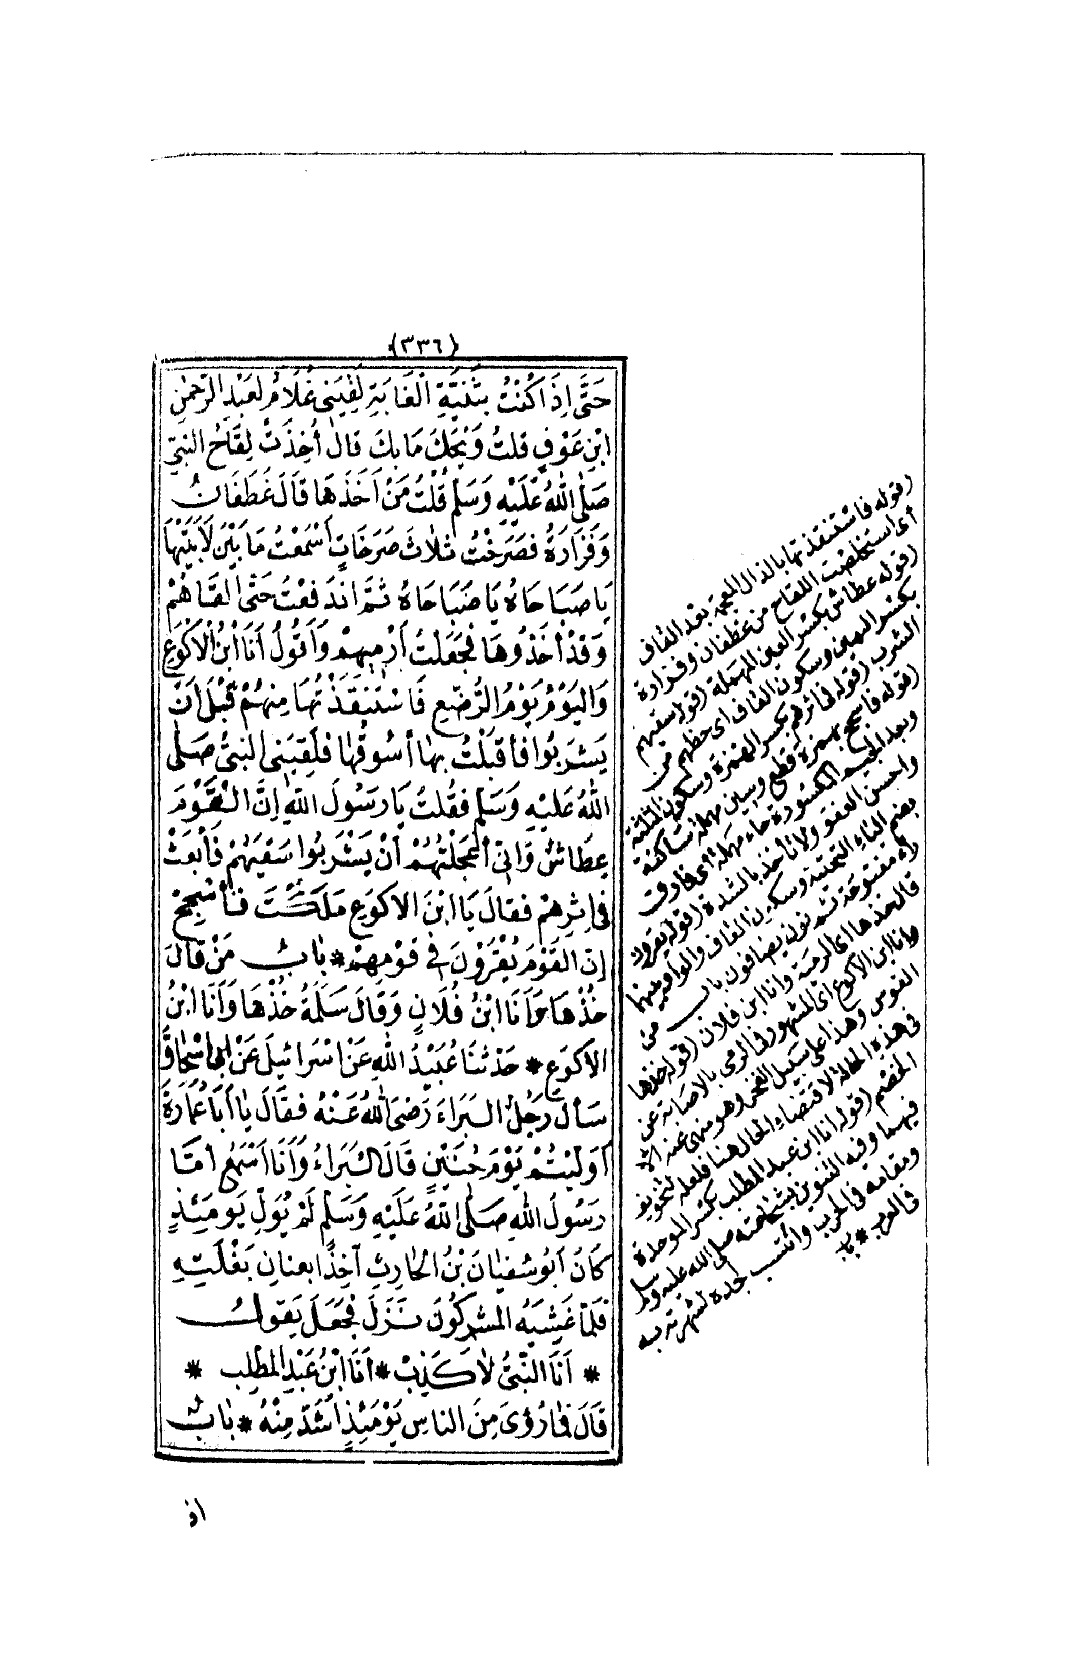 (٣٣٦)
حَتَّى إِذَا كُنْتُ بِثَنِيَّةِ الْغَابَةِ لَقِيَنِي غُلَامٌ لِعَبْدِ الرَّحْمٰنِ
ابْنِ عَوْفٍ قُلْتُ وَيْحَكَ مَا بِكَ قَالَ أُخِذَتْ لِقَاحُ النَّبِيِّ
صَلَّى اللهُ عَلَيْهِ وَسَلَّمَ قُلْتُ مَنْ أَخَذَهَا قَالَ غَطَفَانُ
وَفَزَارَةُ فَصَرَخْتُ ثَلَاثَ صَرَخَاتٍ أَسْمَعْتُ مَا بَيْنَ لَابَتَيْهَا
يَا صَبَاحَاهْ يَا صَبَاحَاهْ ثُمَّ انْدَفَعْتُ حَتَّى أَلْقَاهُمْ
وَقَدْ أَخَذُوهَا فَجَعَلْتُ أَرْمِيهِمْ وَأَقُولُ أَنَا ابْنُ الْأَكْوَعِ
وَالْيَوْمُ يَوْمُ الرُّضَّعِ فَاسْتَنْقَذْتُهَا مِنْهُمْ قَبْلَ أَنْ
يَشْرَبُوا فَأَقْبَلْتُ بِهَا أَسُوقُهَا فَلَقِيَنِي النَّبِيُّ صَلَّى
اللهُ عَلَيْهِ وَسَلَّمَ فَقُلْتُ يَا رَسُولَ اللهِ إِنَّ الْقَوْمَ
عِطَاشٌ وَإِنِّي أَعْجَلْتُهُمْ أَنْ يَشْرَبُوا سَقْيَهُمْ فَابْعَثْ
فِي إِثْرِهِمْ فَقَالَ يَا ابْنَ الْأَكْوَعِ مَلَكْتَ فَأَسْجِحْ
إِنَّ الْقَوْمَ يُقْرَوْنَ فِي قَوْمِهِمْ * بَابُ مَنْ قَالَ
خُذْهَا وَأَنَا ابْنُ فُلَانٍ وَقَالَ سَلَمَةُ خُذْهَا وَأَنَا ابْنُ
الْأَكْوَعِ * حَدَّثَنَا عُبَيْدُ اللهِ عَنْ إِسْرَائِيلَ عَنْ أَبِي إِسْحَاقَ
سَأَلَ رَجُلٌ الْبَرَاءَ رَضِيَ اللهُ عَنْهُ فَقَالَ يَا أَبَا عُمَارَةَ
أَوَلَّيْتُمْ يَوْمَ حُنَيْنٍ قَالَ الْبَرَاءُ وَأَنَا أَسْمَعُ أَمَّا
رَسُولُ اللهِ صَلَّى اللهُ عَلَيْهِ وَسَلَّمَ لَمْ يُوَلِّ يَوْمَئِذٍ
كَانَ أَبُو سُفْيَانَ بْنُ الْحَارِثِ آخِذًا بِعِنَانِ بَغْلَتِهِ
فَلَمَّا غَشِيَهُ الْمُشْرِكُونَ نَزَلَ فَجَعَلَ يَقُولُ
* أَنَا النَّبِيُّ لَا كَذِبْ * أَنَا ابْنُ عَبْدِ الْمُطَّلِبْ *
قَالَ فَمَا رُؤِيَ مِنَ النَّاسِ يَوْمَئِذٍ أَشَدُّ مِنْهُ * بَابُ
(قوله فاستنقذتها بالذال المعجمة بعد القاف
أى استخلصت اللقاح من غطفان وفزارة
(قوله عطاش بكسر العين المهملة (قوله سقيهم
بكسر السين وسكون القاف اى حظهم من
الشرب (قوله فى اثرهم بكسر الهمزة وسكون المثلثة
(قوله فاسجح بهمزة قطع وسين مهملة ساكنة
وبعد الجيم المكسورة حاء مهملة اى فارفق
واحسن العفو ولا تأخذ بالشدة (قوله يقرون
بضم الياء التحتية وسكون القاف والواو بينهما
راء مفتوحة ثم نون يضافون باب من
قال خذها اى الرمية وانا ابن فلان (قوله خذها
وانا ابن الاكوع اى المشهور فى الرمى بالاصابة عن
القوس وهذا على سبيل الفخر وهو منهى عنه الا
فى هذه الحالة لاقتضاء الحال هنا فعله لتخويف
الخصم (قوله انا ابن عبد المطلب بكسر الموحدة
فيهما وفيه التنوين بشجاعته صلى الله عليه وسلم
ومقامه فى الحرب وانتسب لجده لشهرته به
فى العرب * باب
اذ